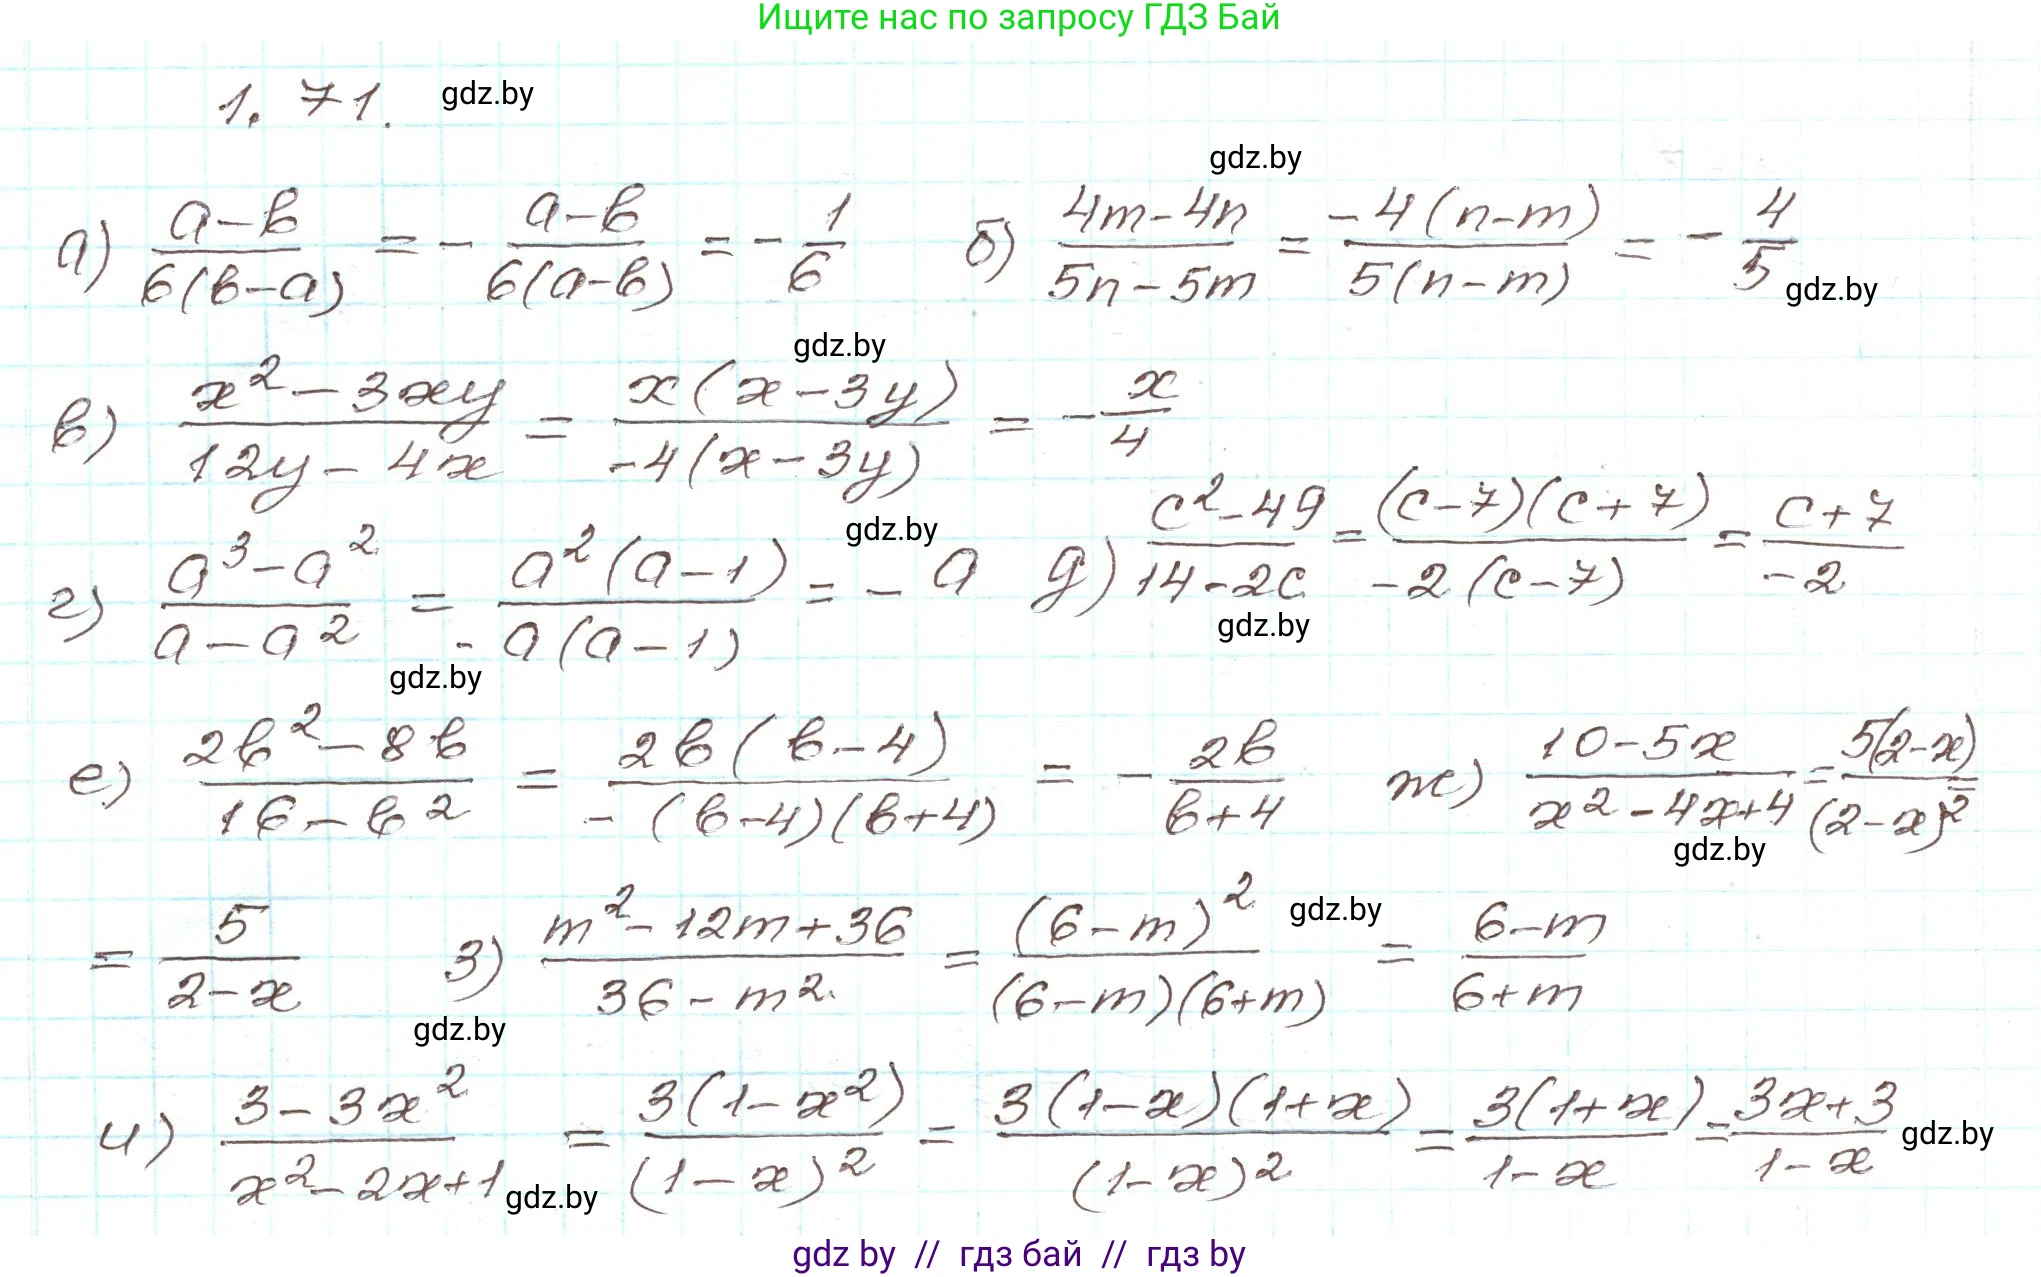 Ищите нас по запросу ГДЗ Бай
1.71. gdz.by
gdz.by
а) (a-b)/(6(b-a)) = - (a-b)/(6(a-b)) = - 1/6 б) (4m-4n)/(5n-5m) = (-4(n-m))/(5(n-m)) = - 4/5 gdz.by
gdz.by
в) (x²-3xy)/(12y-4x) = (x(x-3y))/(-4(x-3y)) = - x/4
gdz.by
г) (a³-a²)/(a-a²) = (a²(a-1))/(-a(a-1)) = - a д) (c²-49)/(14-2c) = ((c-7)(c+7))/(-2(c-7)) = (c+7)/(-2)
gdz.by
gdz.by
е) (2b²-8b)/(16-b²) = (2b(b-4))/(-(b-4)(b+4)) = - 2b/(b+4) ж) (10-5x)/(x²-4x+4) = (5(2-x))/((2-x)²) =
gdz.by
= 5/(2-x) з) (m²-12m+36)/(36-m²) = ((6-m)²)/((6-m)(6+m)) = (6-m)/(6+m)
gdz.by
gdz.by
и) (3-3x²)/(x²-2x+1) = (3(1-x²))/((1-x)²) = (3(1-x)(1+x))/((1-x)²) = (3(1+x))/(1-x) = (3x+3)/(1-x) gdz.by
gdz.by
gdz by // гдз бай // гдз by